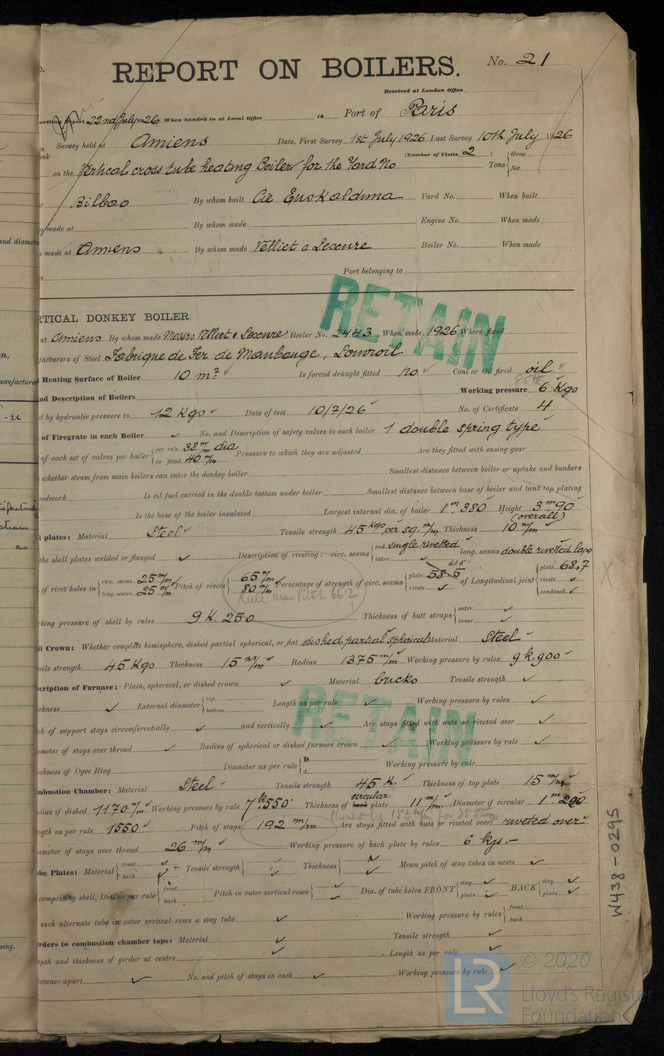 REPORT ON BOILERS. No. 21
Received at London Office
22nd July 26 When handed in at Local Office 19 Port of Paris
Survey held at Amiens Date, First Survey 1st July 1926 Last Survey 10th July 1926
(Number of Visits 2) Gross
on the Vertical cross tube heating Boiler for the Yard No Tons Net
Bilbao By whom built Cie Euskalduna Yard No. When built
made at By whom made Engine No. When made
made at Amiens By whom made Velliet & Lescure Boiler No. When made
Port belonging to
RTICAL DONKEY BOILER.
RETAIN
at Amiens By whom made Messrs Velliet & Lescure Boiler No. 2443 When made 1926 Where fixed
facturers of Steel Fabrique de Fer de Maubeuge,
Heating Surface of Boiler 10 m² Is forced draught fitted no Coal or Oil fired oil
nd Description of Boilers Working pressure 6 Kgo
d by hydraulic pressure to 12 Kgo Date of test 10/7/26 No. of Certificate 4
of Firegrate in each Boiler No. and Description of safety valves to each boiler 1 double spring type
of each set of valves per boiler per rule 38 m/m dia as fitted 40 m/m Pressure to which they are adjusted Are they fitted with easing gear
whether steam from main boilers can enter the donkey boiler Smallest distance between boiler or uptake and bunkers
oodwork Is oil fuel carried in the double bottom under boiler Smallest distance between base of boiler and tank top plating
Is the base of the boiler insulated Largest internal dia. of boiler 1 m 380 Height 3 m 90 (overall)
l plates: Material Steel Tensile strength 45 Kgo per sq. m/m Thickness 10 m/m
the shell plates welded or flanged Description of riveting: circ. seams end single rivetted inter. long. seams double rivetted lap
of rivet holes in circ. seams 25 m/m long. seams 25 m/m Pitch of rivets 65 m/m 80 m/m Percentage of strength of circ. seams plate 58.5 rivets of Longitudinal joint plate 68.7 rivets combined
king pressure of shell by rules 9 K. 250 Thickness of butt straps outer inner
l Crown: Whether complete hemisphere, dished partial spherical, or flat dished partial spherical Material Steel
sile strength 45 Kgo Thickness 15 m/m Radius 1375 m/m Working pressure by rules 9 k. 900
escription of Furnace: Plain, spherical, or dished crown Material bucks Tensile strength
RETAIN
ckness External diameter top bottom Length as per rule Working pressure by rules
ch of support stays circumferentially and vertically Are stays fitted with nuts or riveted over
ameter of stays over thread Radius of spherical or dished furnace crown Working pressure by rule
ickness of Ogee Ring Diameter as per rule D d Working pressure by rule
mbustion Chamber: Material Steel Tensile strength 45 K. Thickness of top plate 15 m/m
adius if dished 1170 m/m Working pressure by rule 7 k 550 Thickness of circular plate 11 m/m Diameter if circular
ngth as per rule 1550 Pitch of stays 192 m/m Are stays fitted with nuts or riveted over riveted over
ameter of stays over thread 26 m/m Working pressure of back plate by rules 6 kgs.
be Plates: Material front back Tensile strength Thickness Mean pitch of stay tubes in nests
comprising shell, Dia. as per rule front back Pitch in outer vertical rows Dia. of tube holes FRONT stay plain BACK stay plain
each alternate tube in outer vertical rows a stay tube Working pressure by rules front back
irders to combustion chamber tops: Material Tensile strength
epth and thickness of girder at centre Length as per rule
istance apart No. and pitch of stays in each Working pressure by rule
W438-0295
© 2020
LR
Lloyd's Register
Foundation